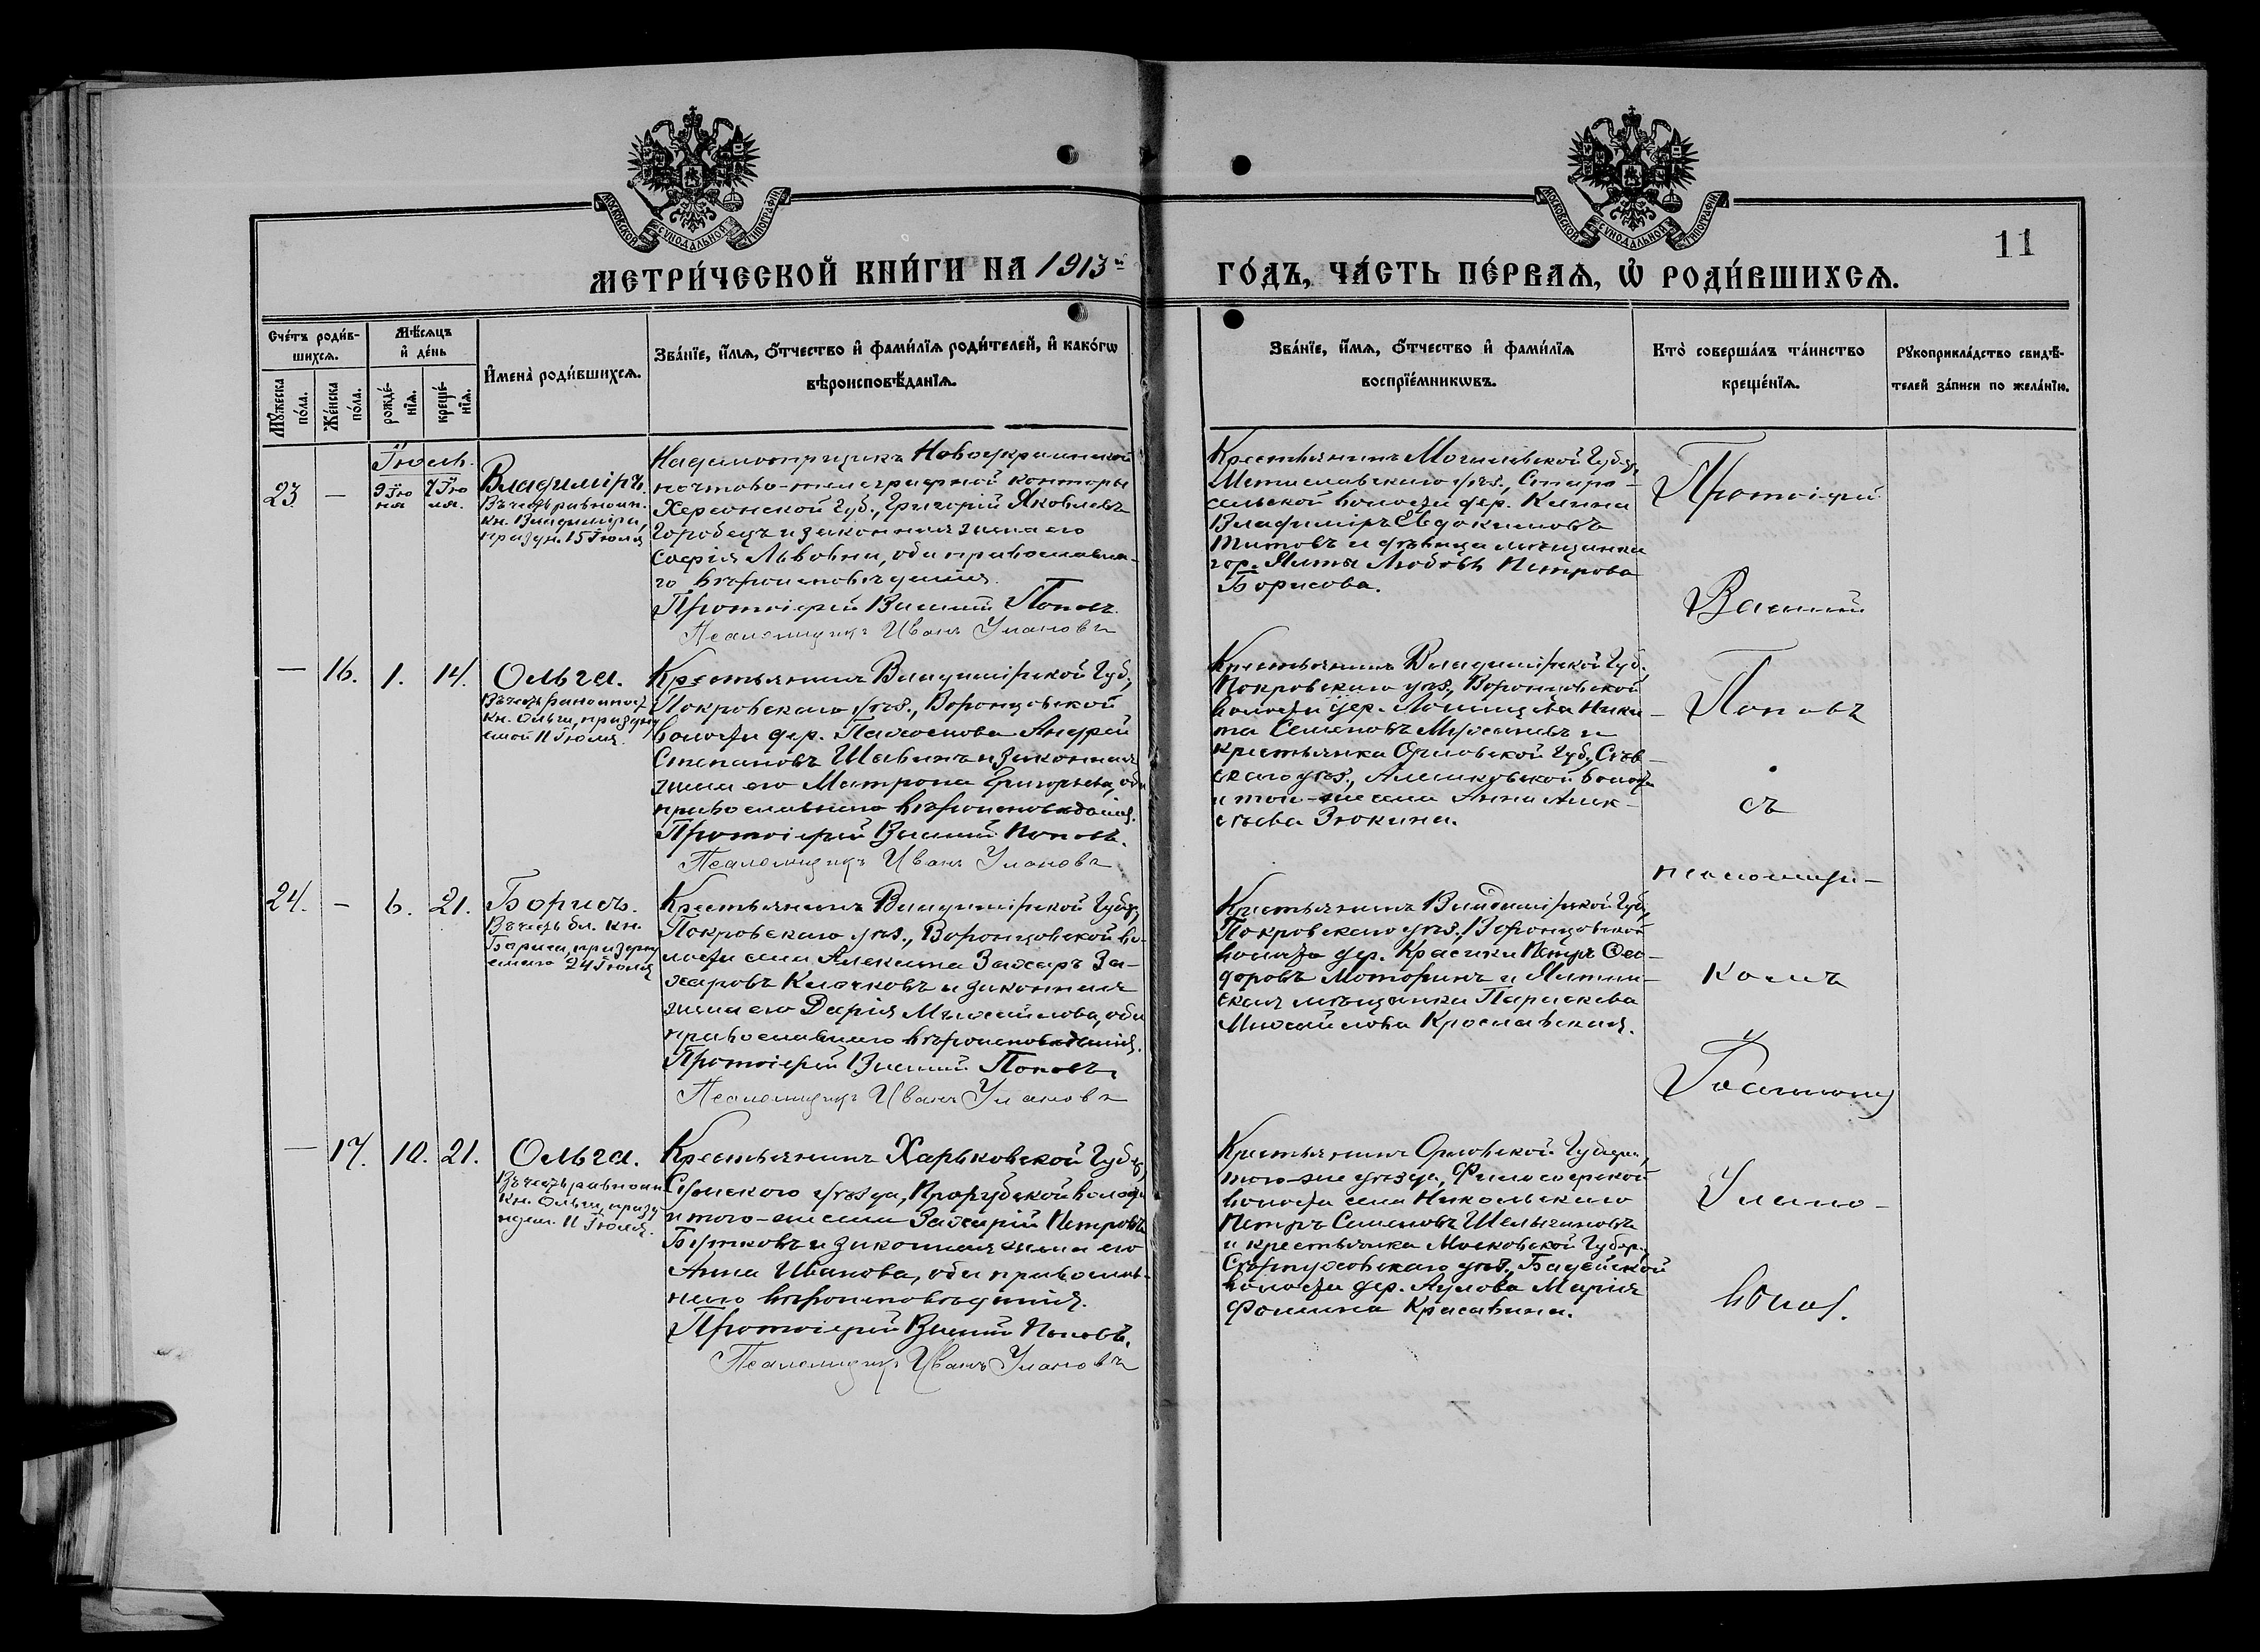 МОСКОВСКОЙ СѴНОДАЛЬНОЙ ТИПОГРАФІИ
МОСКОВСКОЙ СѴНОДАЛЬНОЙ ТИПОГРАФІИ
11
МЕТРИ́ЧЕСКОЙ КНИ́ГИ НА 1913й
ГО́ДЪ, ЧА́СТЬ ПЕ́РВАѦ, Ѡ҆ РОДИ́ВШИХСѦ.
Сче́тъ роди́в-
шихсѧ.
Мѣ́сѧцъ
и҆ де́нь
И҆мена̀ роди́вшихсѧ.
Зва́нїе, и҆́мѧ, ѻ҆́тчество и҆ фами́лїѧ роди́телей, и҆ како́гѡ
вѣроисповѣ́данїѧ.
Мꙋ́жеска
по́ла.
Же́нска
по́ла.
рожде́-
нїѧ.
креще́-
нїѧ.
Зва́нїе, и҆́мѧ, ѻ҆́тчество и҆ фами́лїѧ
воспрїе́мникѡвъ.
Кто̀ соверша́лъ та́инство
креще́нїѧ.
Рꙋкоприкла́дство свидѣ́-
телей за́писи по жела́нїю.
Іюль.
23
—
9 Ію
ня
7 Iю
ля.
Владиміръ.
Въ честь равноап.
кн. Владиміра,
праздн. 15 Іюля
Надсмотрщикъ Новоукраинской
почтово-телеграфной конторы
Херсонской Губ., Григорій Яковлевъ
Горобецъ и законная жена его
Софія Львовна, оба православна-
го вѣроисповѣданія.
Протоіерей Василій Поповъ.
Псаломщикъ Иванъ Улановъ
Крестьянинъ Могилевской Губер,
Мстиславскаго уѣз., Старо-
сельской волости дер. Клина
Владиміръ Евдокимовъ
Титовъ и дѣвица мѣщанка
гор. Ялты Любовь Петрова
Борисова.
—
16.
1.
14.
Ольга.
Въ честь равноапост
кн. Ольги, праздну
емой 11 Іюля.
Крестьянинъ Владимірской Губ.,
Покровскаго уѣз., Воронцовской
волости дер. Андрей
Степановъ Шавинъ и законная
жена его Матрона Григорьева, оба
православнаго вѣроисповѣданія.
Протоіерей Василій Поповъ.
Псаломщикъ Иванъ Улановъ
Крестьянинъ Владимірской Губ.
Покровскаго уѣз., Воронцовской
волости дер. Ники-
та Семеновъ и
крестьянка Орловской Губ., Сѣв-
скаго уѣз., Алешковской волости
и того-же села Анна Алек-
сѣева Зюкина.
24.
—
6.
21.
Борисъ.
Въ честь бл. кн.
Бориса, праздну
емаго 24 Іюля
Крестьянинъ Владимірской Губер,
Покровскаго уѣз., Воронцовской во-
лости села Алексина Захаръ За-
харовъ Клочковъ и законная
жена его Дарія Михайлова, оба
православнаго вѣроисповѣданія.
Протоіерей Василій Поповъ.
Псаломщикъ Иванъ Улановъ
Крестьянинъ Владимірской Губ.,
Покровскаго уѣз., Воронцовской
волости дер. Красики Петръ Ѳео-
доровъ Моторинъ и Ялтин-
ская мѣщанка Параскева
Михайлова Крославская.
—
17.
10.
21.
Ольга.
Въ честь равноап.
кн. Ольги, празд
нуем. 11 Іюля.
Крестьянинъ Харьковской Губер,
Сумского уѣзда, волости
и того-же села Захарій Петровъ
Бутковъ и законная жена его
Анна Иванова, оба православ-
наго вѣроисповѣданія.
Протоіерей Василій Поповъ.
Псаломщикъ Иванъ Улановъ
Крестьянинъ Орловской Губерн,
того-же уѣзда, Философской
волости села Никольскаго
Петръ Семеновъ
и крестьянка Московской Губер.
Серпуховскаго уѣз.,
волости дер. Марія
Фомина Красавина.
Протоіерей
Василій
Поповъ
съ
псаломщи-
комъ
Іоанномъ
Улано-
вымъ.